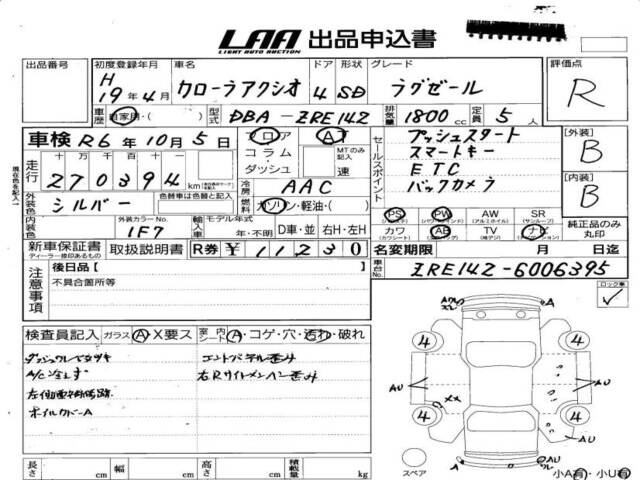 LAA 出品申込書
LIGHT AUTO AUCTION
出品番号
初度登録年月 H 19年4月
車名 カローラアクシオ
ドア 4
形状 SD
グレード ラグゼール
評価点 R
車歴 自家用・( )
型式 DBA-ZRE142
排気量 1800 cc
定員 5人
車検 R6年10月5日
フロア コラム・ダッシュ
AT
MTのみ記入 速
セールスポイント
プッシュスタート
スマートキー
ETC
バックカメラ
[外装] B
[内装] B
現在色を記入
走行 十万千百十 270394 km
冷房 AAC
外装色 シルバー
色替車は色替と記入
燃料 ガソリン・軽油・( )
内装色
外装カラーNo. 1F7
輸入車
モデル年式 年・不明
D車・並 右H・左H
PS PW AW SR
カワ AB TV ナビ
純正品のみ丸印
新車保証書
ディーラー捺印あるもの
取扱説明書
R券 ¥11,230
名変期限 月 日迄
車台No. ZRE142-6006395
ロック車
注意事項
後日品[ ]
不具合箇所等
検査員記入 ガラス A・X要ス 室内シート A・コゲ・穴・汚れ・破れ
ボイルカバーA
4 4 4 4
A
AU
AU
AU
スペア
長さ cm 幅 cm 高さ cm 積載量 kg
小A有・小U有